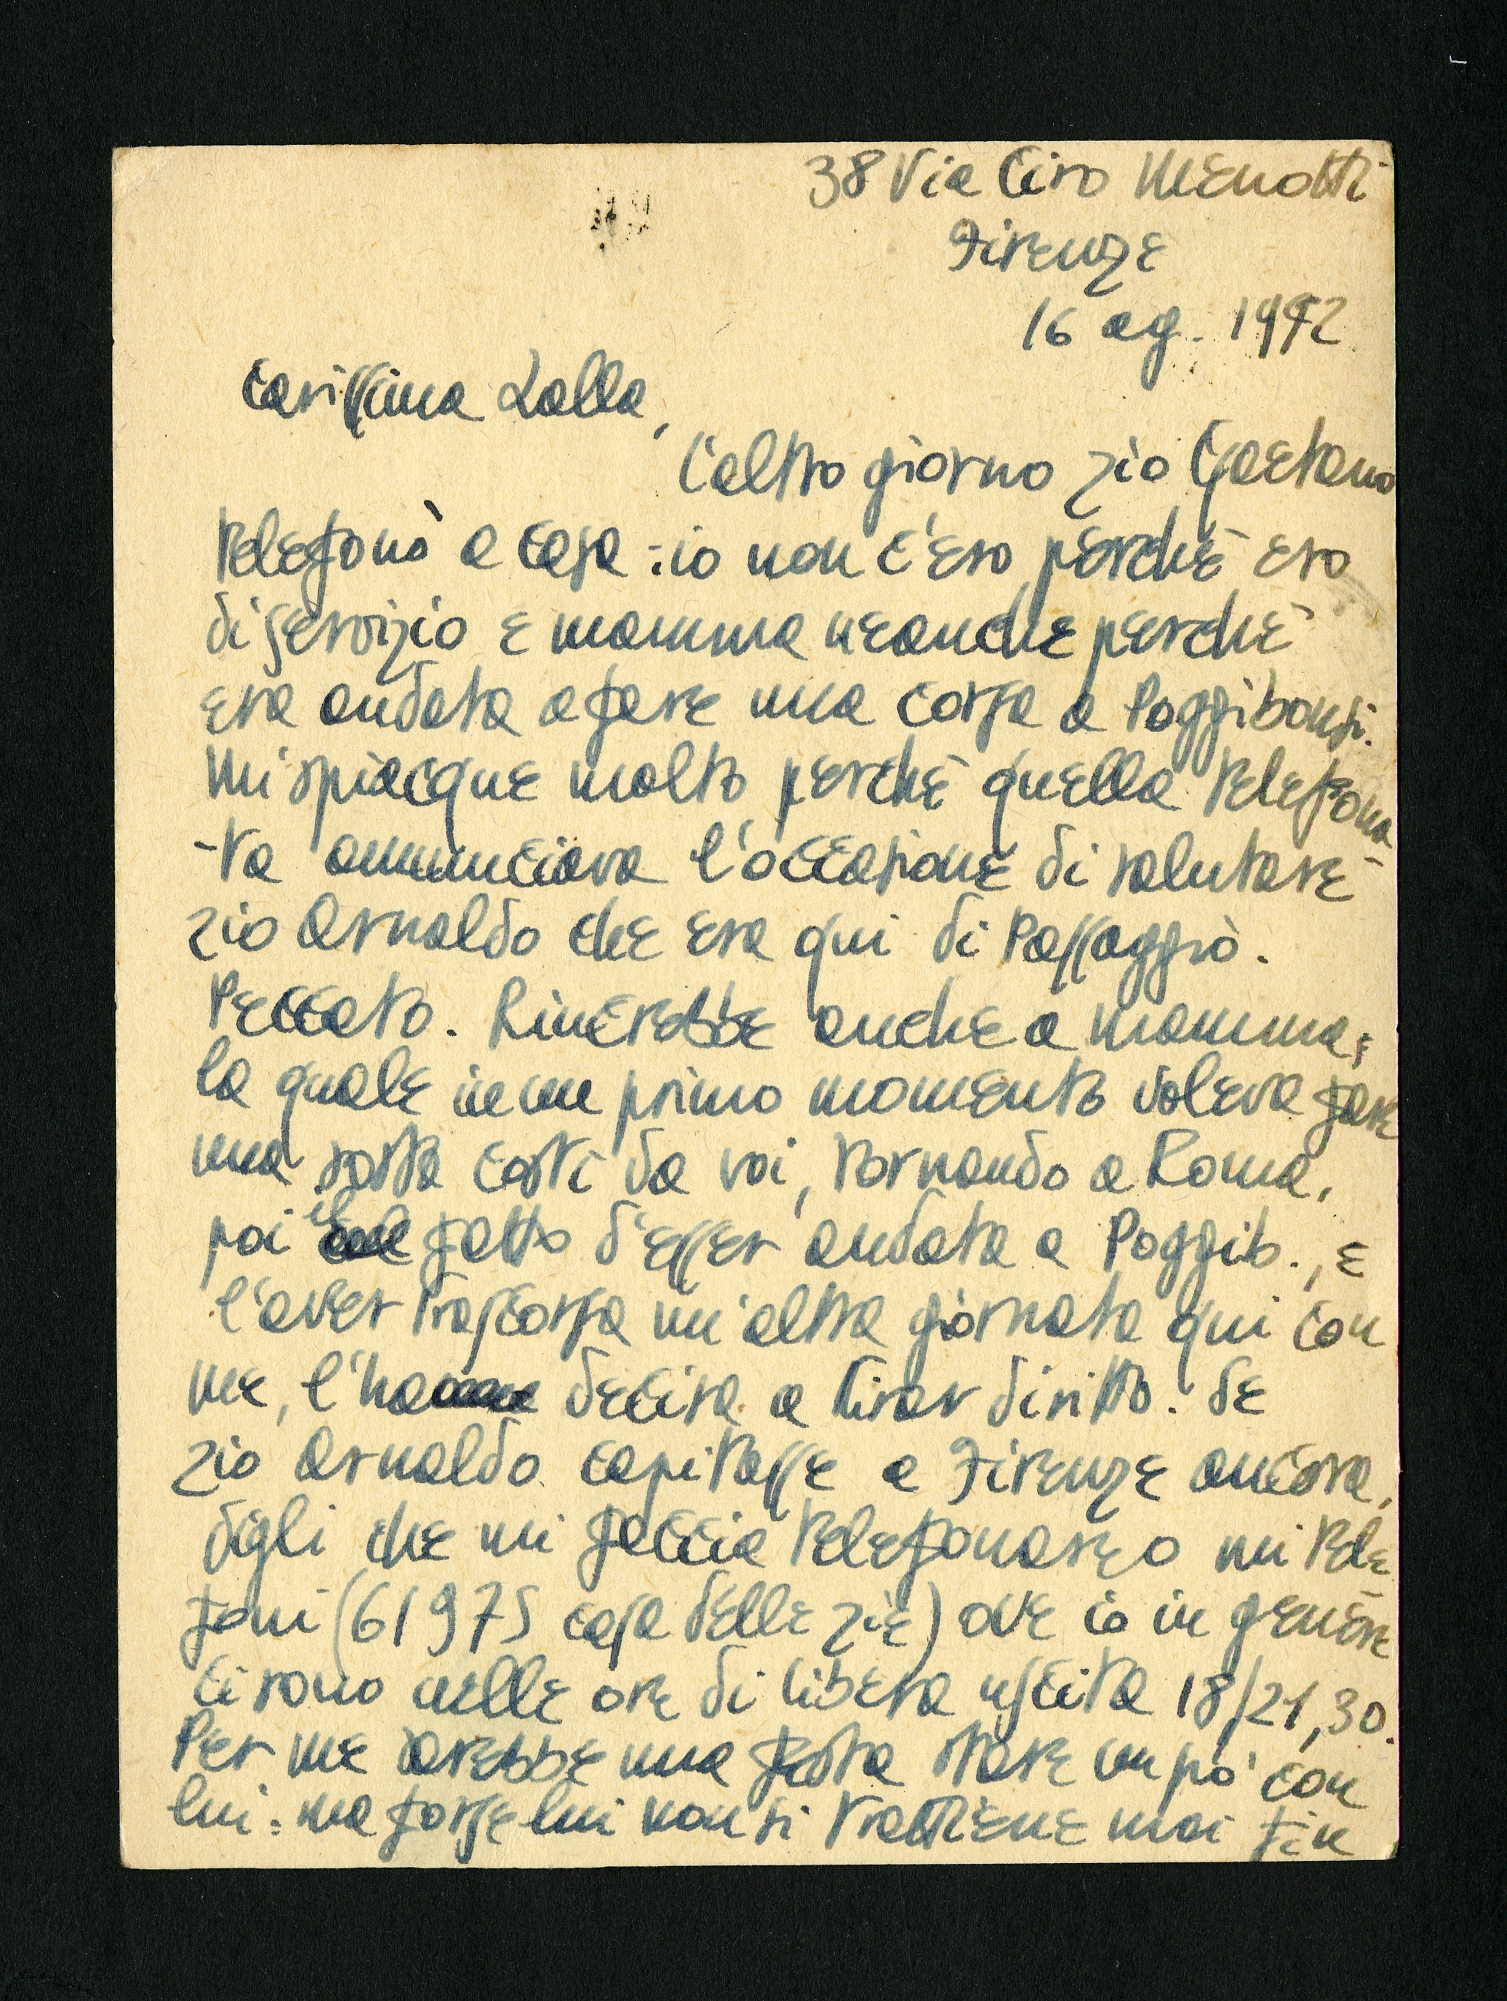 38 Via Ciro Menotti
Firenze
16 ag. 1942
Carissima Lalla,
l'altro giorno zio Gaetano
telefonò a casa: io non c'ero perché ero
di servizio e mamma neanche perché
era andata a fare una corsa a Poggibonsi.
Mi spiacque molto perché quella telefona-
-ta annunciava l'occasione di salutare
zio Arnaldo che era qui di passaggio.
Peccato. Rincrebbe anche a mamma;
la quale in un primo momento voleva fare
una sosta costì da voi, tornando a Roma,
poi il fatto d'esser andata a Poggib., e
l'aver trascorsa un'altra giornata qui con
me, l'ha decisa a tirar diritto. Se
zio Arnaldo capitasse a Firenze ancora,
digli che mi faccia telefonare o mi tele
foni (61975 casa delle zie) ove io in genere
ci sono nelle ore di libera uscita 18/21,30.
Per me sarebbe una festa stare un pò con
lui: ma forse lui non si trattiene mai fin